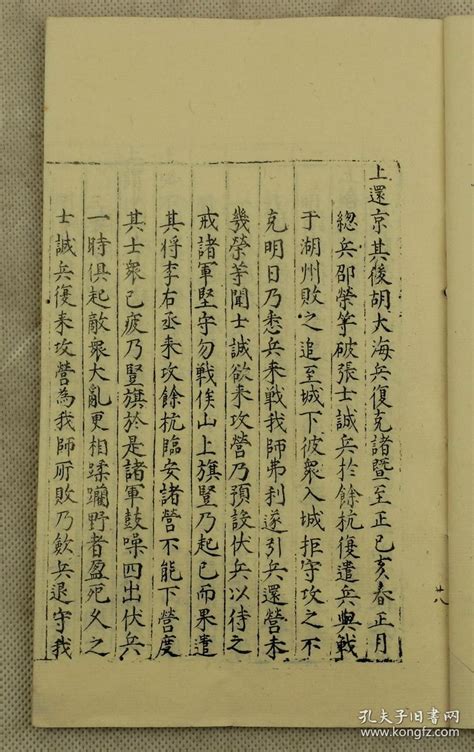 上還京其後胡大海兵復克諸暨至正已亥春正月
總兵邵榮等破張士誠兵於餘杭復遣兵與戰
于湖州敗之追至城下彼衆入城拒守攻之不
克明日乃悉兵来戰我師弗利遂引兵還營未
幾榮等聞士誠欲来攻營乃預設伏兵以待之
戒諸軍堅守勿戰俟山上旗豎乃起已而果遣
其将李右丞来攻餘杭臨安諸營不能下營度
其士衆已疲乃豎旗於是諸軍鼓噪四出伏兵
一時俱起敵衆大亂更相蹂躪野者盈死久之
士誠兵復来攻營為我師所敗乃斂兵退守我
孔夫子旧书网
www.kongfz.com